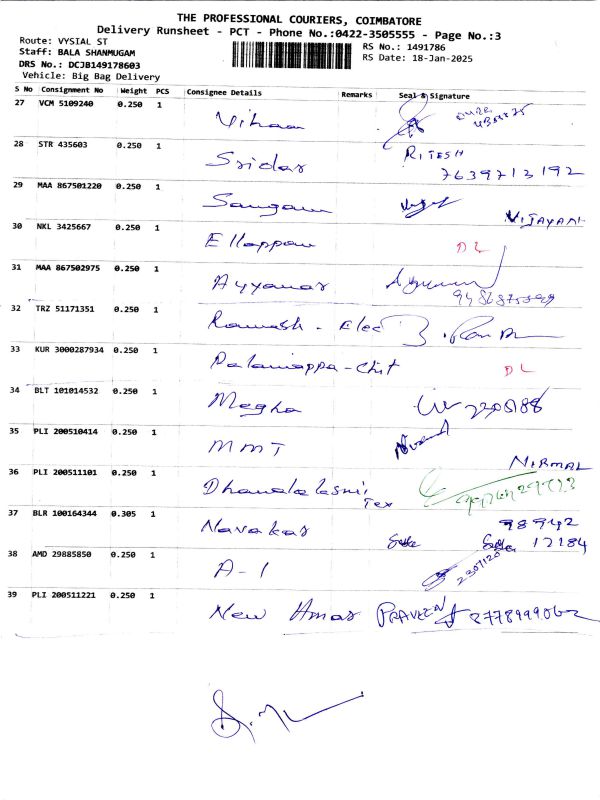 THE PROFESSIONAL COURIERS, COIMBATORE
Delivery Runsheet - PCT - Phone No.:0422-3505555 - Page No.:3
Route: VYSIAL ST
Staff: BALA SHANMUGAM
DRS No.: DCJB149178603
Vehicle: Big Bag Delivery
RS No.: 1491786
RS Date: 18-Jan-2025
S No Consignment No Weight PCS Consignee Details Remarks Seal & Signature
27 VCM 5109240 0.250 1 Vihaan
28 STR 435603 0.250 1 Sridar RITESH 7639713192
29 MAA 867501220 0.250 1 Sangam VIJAYAN
30 NKL 3425667 0.250 1 Ellappan DL
31 MAA 867502975 0.250 1 Ayyanar
32 TRZ 51171351 0.250 1 Ramesh - Elec
33 KUR 3000287934 0.250 1 Palaniappa - Chit DL
34 BLT 101014532 0.250 1 Megha
35 PLI 200510414 0.250 1 MMT NIRMAL
36 PLI 200511101 0.250 1 Dhanalaksmi Tex
37 BLR 100164344 0.305 1 Navakar 98942 12184
38 AMD 29885850 0.250 1 A-1
39 PLI 200511221 0.250 1 New Amar PRAVEEN